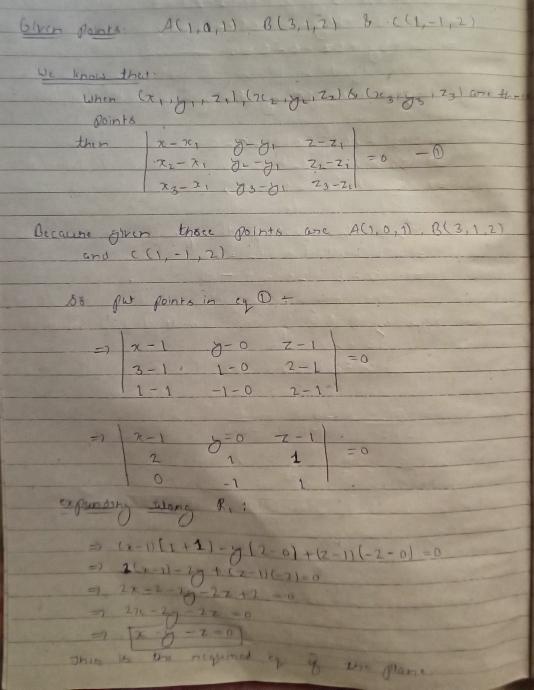 Given points. A(1,0,1) B(3,1,2) & C(1,-1,2)
We know that.
When (x₁, y₁, z₁), (x₂, y₂, z₂) & (x₃, y₃, z₃) are three
points
then | x-x₁ y-y₁ z-z₁ |
| x₂-x₁ y₂-y₁ z₂-z₁ | = 0 - ①
| x₃-x₁ y₃-y₁ z₃-z₁ |
Because given those points are A(1,0,1), B(3,1,2)
and C(1,-1,2)
So put points in eq ① -
=> | x-1 y-0 z-1 |
| 3-1 1-0 2-1 | = 0
| 1-1 -1-0 2-1 |
=> | x-1 y-0 z-1 |
| 2 1 1 | = 0
| 0 -1 1 |
expanding along R₁:
=> (x-1)[1+1) - y(2-0) + (z-1)(-2-0) = 0
=> 2(x-1) - 2y + (z-1)(-2) = 0
=> 2x-2-2y-2z+2 = 0
=> 2x-2y-2z = 0
=> x-y-z=0
This is the required eq of the plane